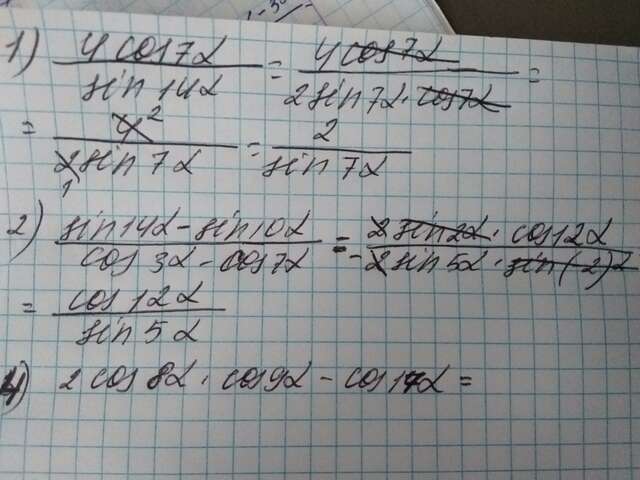 1) 4cos7α / sin14α = 4cos7α / 2sin7α·cos7α =
= 4² / 2₁sin7α = 2 / sin7α
2) sin14α - sin10α / cos3α - cos7α = 2sin2α · cos12α / -2sin5α · sin(-2)α
= cos12α / sin5α
4) 2cos8α · cos9α - cos17α =